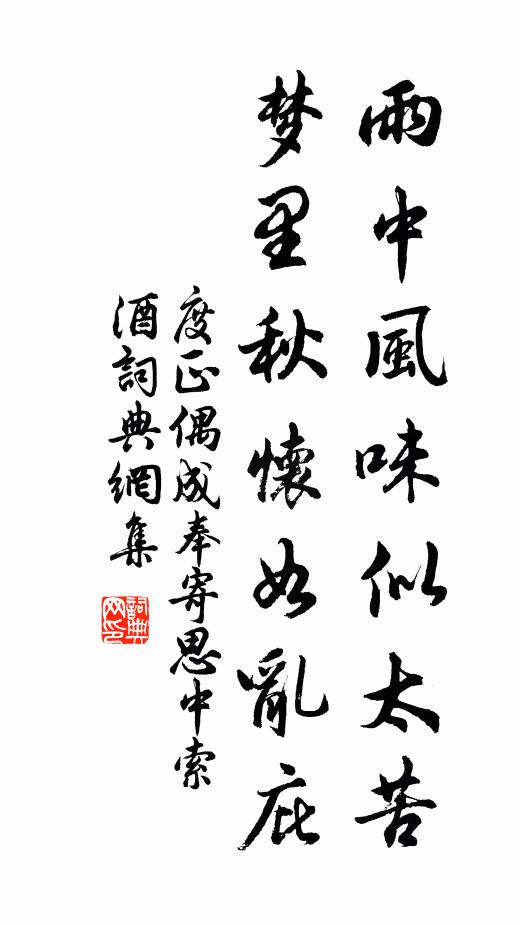 雨中風味似太苦
梦里秋懷如亂庇
度正偶成奉寄思中索
酒詞典網集
詞典
网印